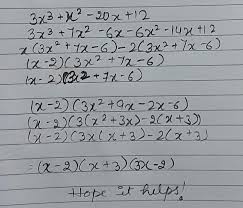 3x³+x²-20x+12
3x³+7x²-6x-6x²-14x+12
x(3x²+7x-6)-2(3x²+7x-6)
(x-2)(3x²+7x-6)
(x-2)(3x²+7x-6)
(x-2)(3x²+9x-2x-6)
(x-2)(3(x²+3x)-2(x+3))
(x-2)(3x(x+3)-2(x+3)
=(x-2)(x+3)(3x-2)
Hope it helps!